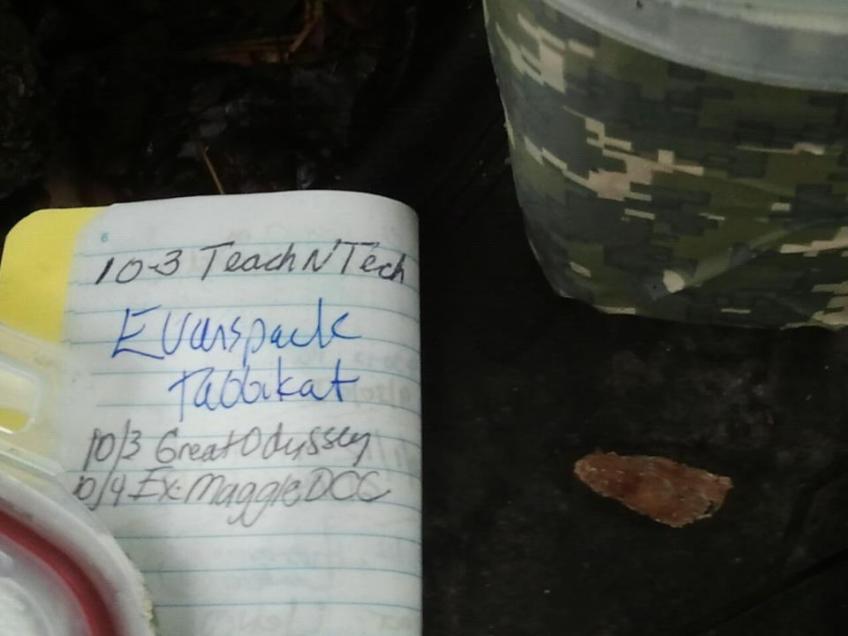 10-3 TeachN'Tech
Evanspack
Tabbikat
10/3 GreatOdyssey
10/4 Ex-MaggieDOC